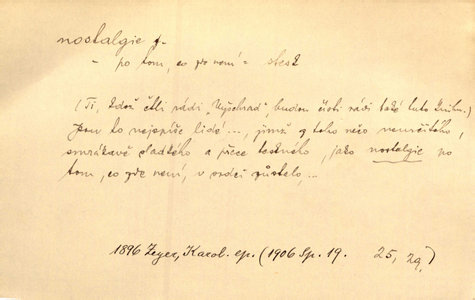 nostalgie f.
- po tom, co zde není = stesk
(Ti, kdož četli rádi „Vyšehrad", budou čísti rádi také tuto knihu.)
Jsou to nejspíše lidé ..., jimž z toho něco neurčitého,
smrákavě sladkého a přece teskného, jako nostalgie po
tom, co zde není, v srdci zůstalo, ...
1896 Zeyer, Karol. ep. (1906 Sp. 19. 25, 29.)